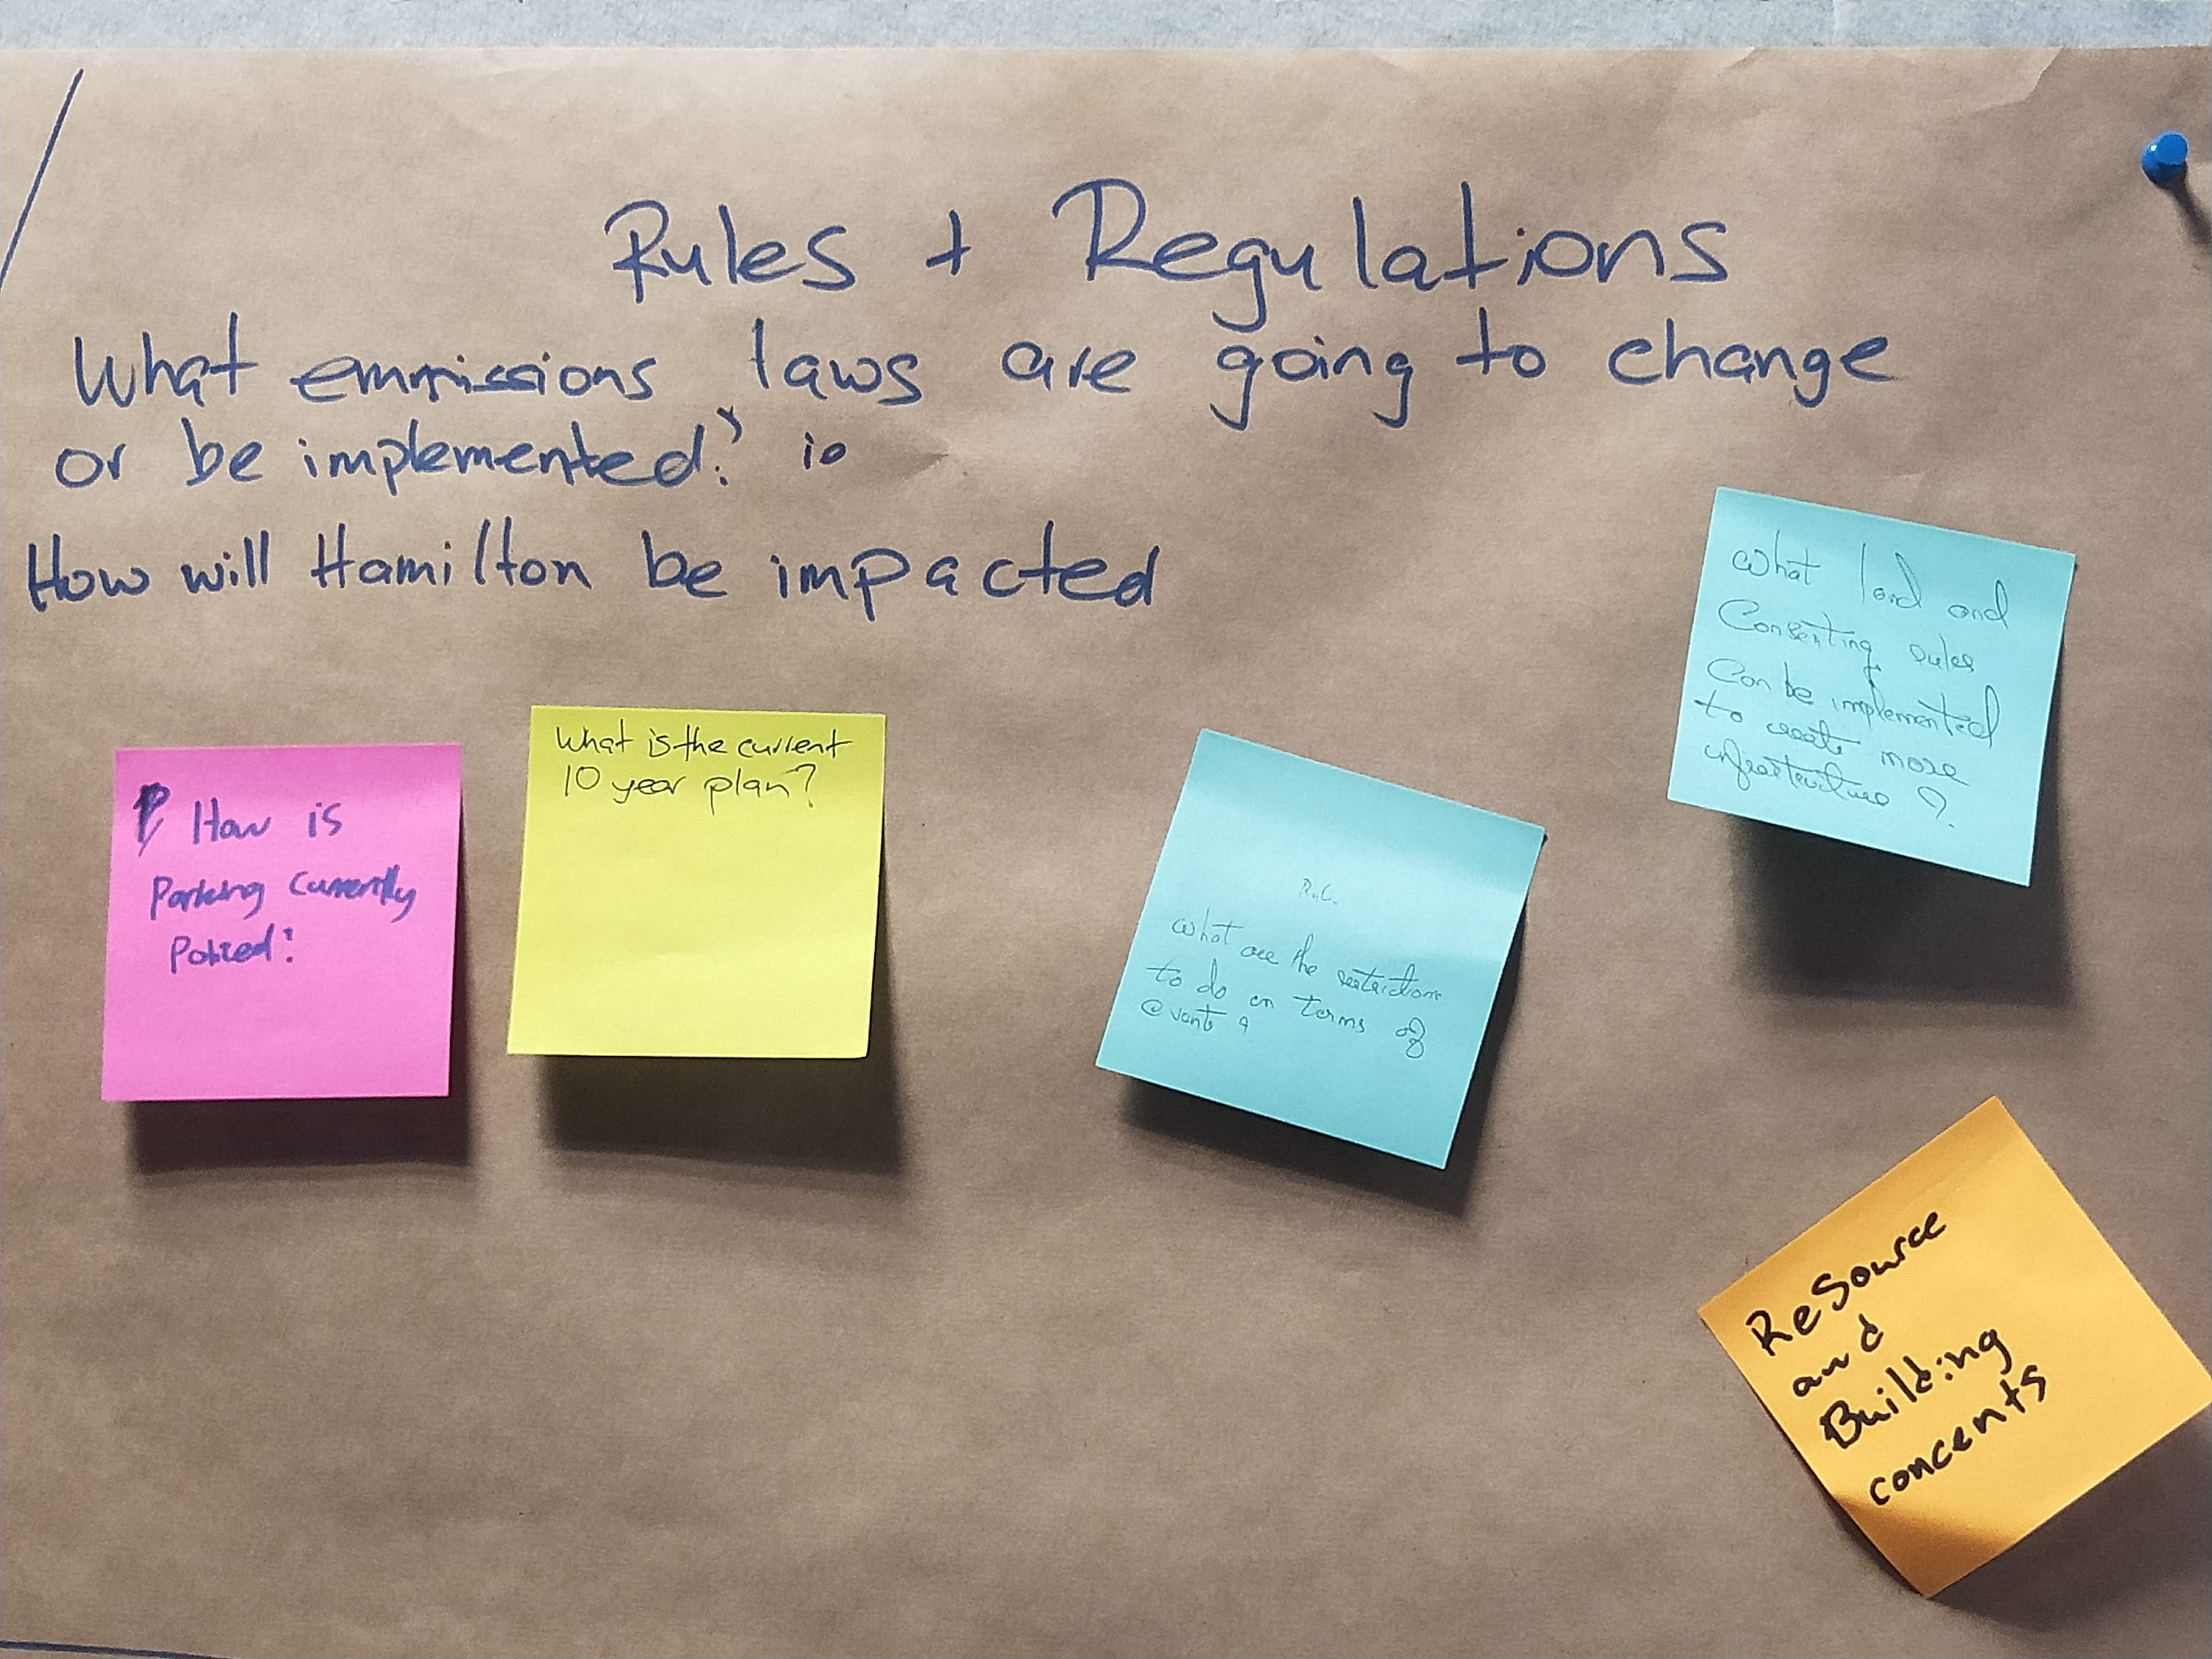 Rules + Regulations
What emmissions laws are going to change
or be implemented? io
How will Hamilton be impacted
How is
Parking Currently
Policed?
What is the current
10 year plan?
What are the restrictions
to do in terms of
events ?
What land and
Consenting rules
Can be implemented
to create more
infrastructure ?
ReSource
and
Building
concents